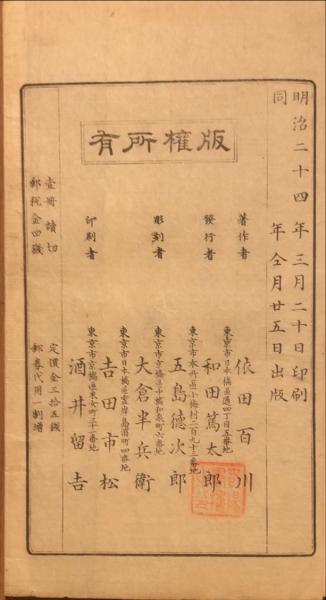 明治二十四年三月二十日印刷
同年仝月廿五日出版
版權所有
著作者
依田百川
東京市日本橋區通四丁目五番地
發行者
和田篤太郎
五島德次郎
彫刻者
東京市京橋區南小田和泉町六番地
大倉半兵衛
東京市日本橋區霊岸島濱町四番地
印刷者
吉田市松
東京市京橋區采女町三十一番地
酒井留吉
壹冊讀切
定價金三拾五錢
郵税金四錢
郵券代用一割增